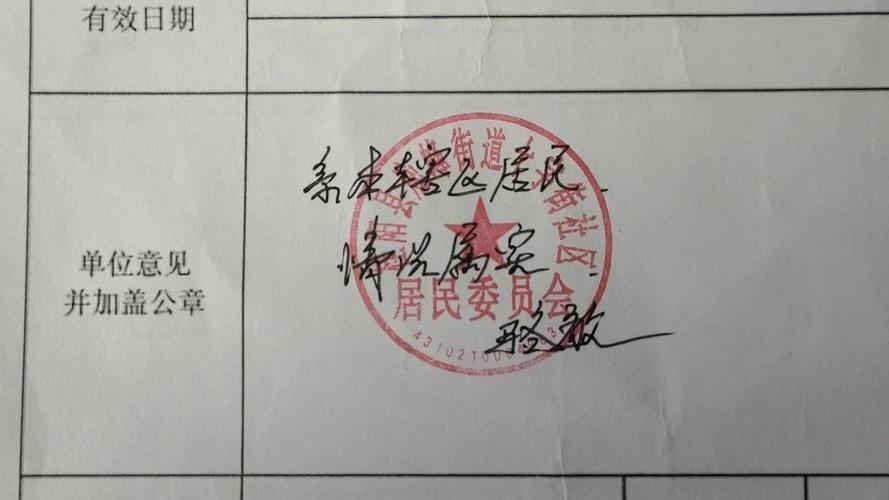 有效日期
单位意见
并加盖公章
系本辖区居民.
情况属实.
街道
社区
居民委员会